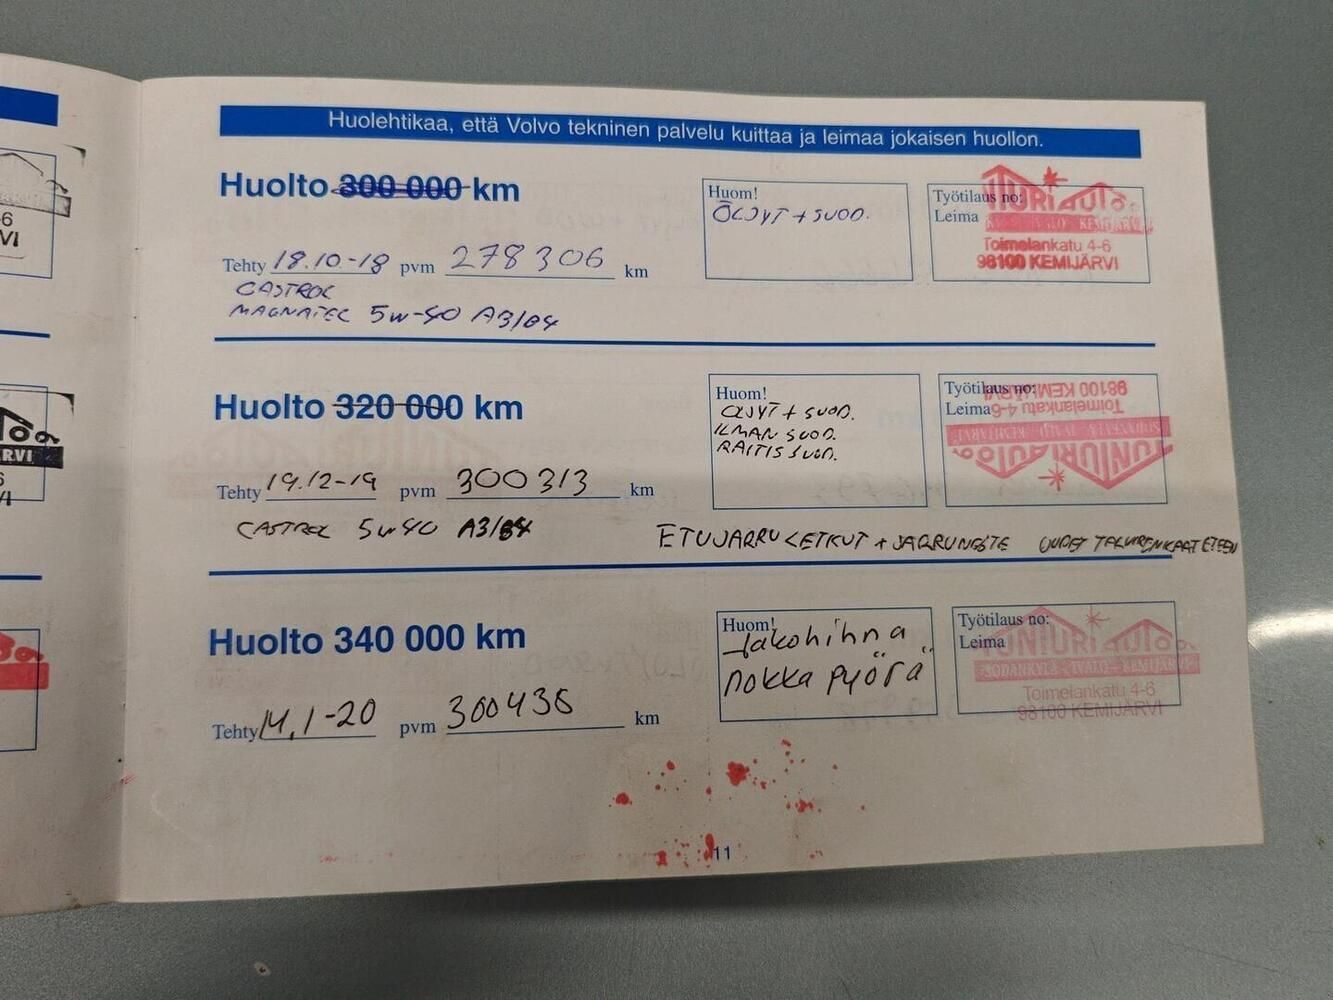 Huolehtikaa, että Volvo tekninen palvelu kuittaa ja leimaa jokaisen huollon.
Huolto 300 000 km
Huom!
ÖLJYT + SUOD.
Työtilaus no:
Leima
TUNTURIAUTO
KEMIJÄRVI
Toimelankatu 4-6
98100 KEMIJÄRVI
Tehty 18.10.-18 pvm 278306 km
CASTROL
MAGNATEC 5W-40 A3/B4
Huolto 320 000 km
Huom!
ÖLJYT + SUOD.
ILMAN SUOD.
RAITIS SUOD.
Työtilaus no:
Leima
TUNTURIAUTO
SODANKYLÄ - IVALO - KEMIJÄRVI
Toimelankatu 4-6
98100 KEMIJÄRVI
Tehty 19.12-19 pvm 300313 km
CASTROL 5W40 A3/B4
ETUJARRULETKUT + JARRUNESTE UUDET TALVIRENKAAT ETEEN
Huolto 340 000 km
Huom!
Jakohihna
nokka pyörä
Työtilaus no:
Leima
TUNTURIAUTO
SODANKYLÄ - IVALO - KEMIJÄRVI
Toimelankatu 4-6
98100 KEMIJÄRVI
Tehty 14.1-20 pvm 300436 km
11